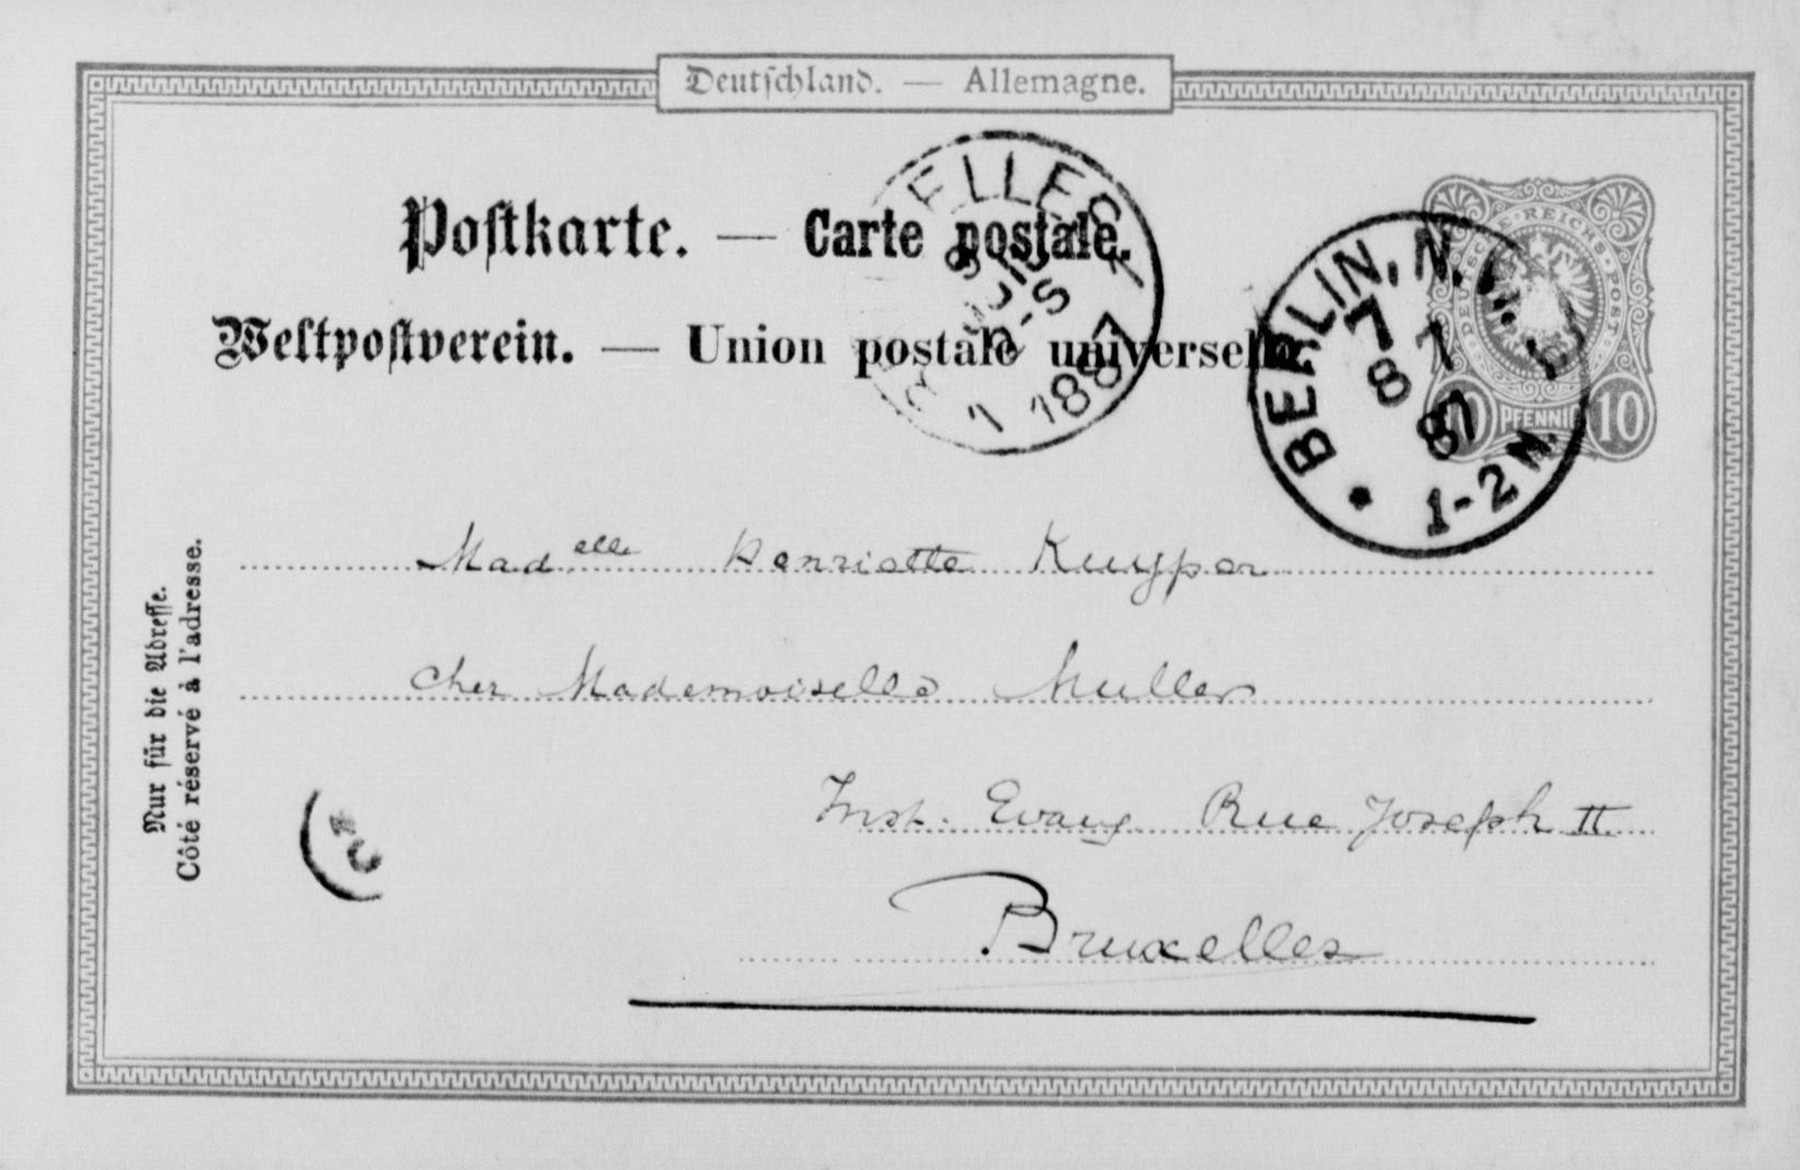 Deutschland. — Allemagne.
Postkarte. — Carte postale.
Weltpostverein. — Union postale universelle
DEUTSCHE REICHS-POST
10 PFENNIG 10
BERLIN, N.W.
7
8 7
87
1-2 N.
ELLES
8-S
1 1887
Mad.elle Henriette Kuyper
chez Mademoiselle Muller
Inst. Evang Rue Joseph II
Bruxelles
Nur für die Adresse.
Côté réservé à l'adresse.